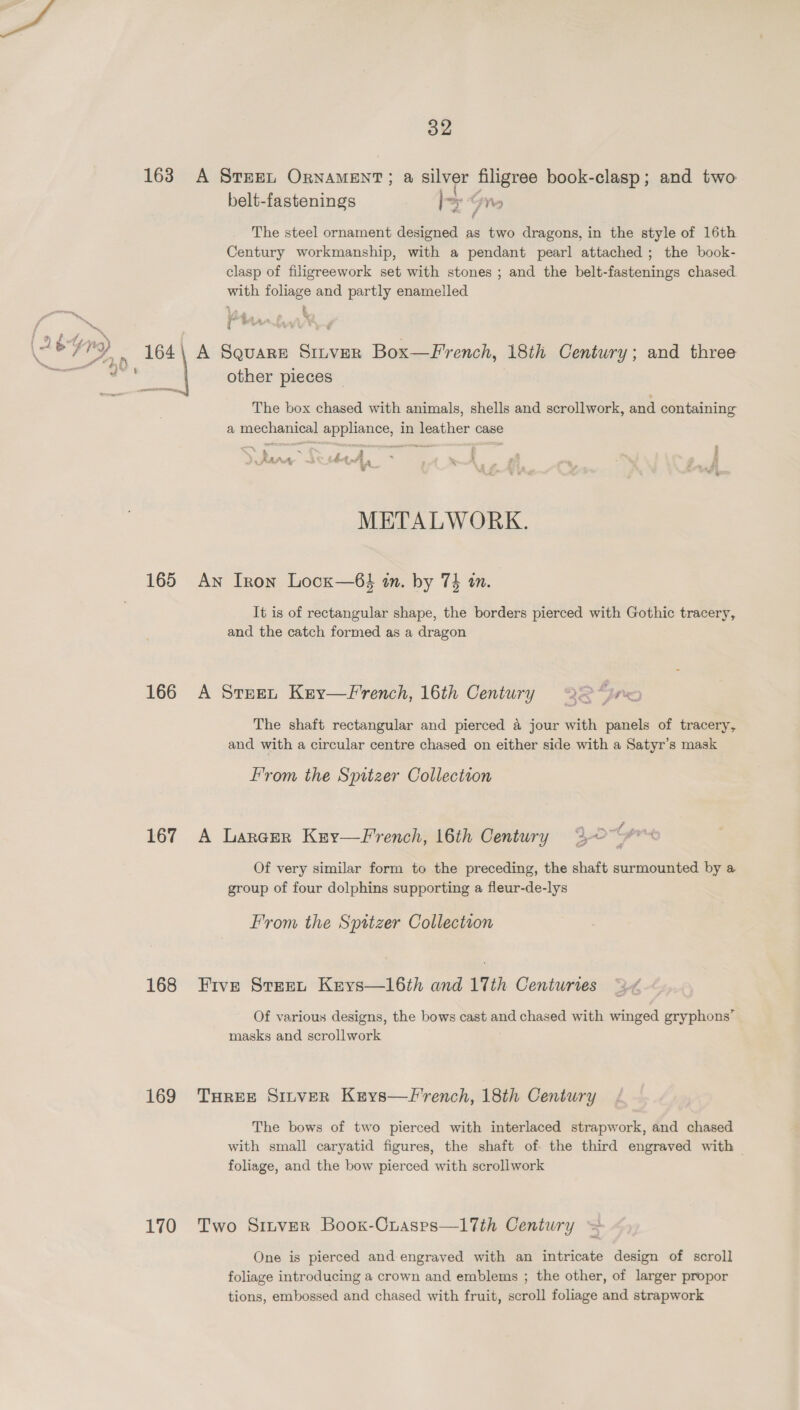 32
163 A STEEL ORNAMENT; a silver filigree book-clasp; and two
belt-fastenings
The steel ornament designed as two dragons, in the style of 16th
Century workmanship, with a pendant pearl attached; the book-
clasp of filigreework set with stones; and the belt-fastenings chased
with foliage and partly enamelled
164 A SQUARE SILVER BOX—French, 18th Century; and three
other pieces
The box chased with animals, shells and scrollwork, and containing
a mechanical appliance, in leather case
METALWORK.
165 AN IRON LOCK—6½ in. by 7½ in.
It is of rectangular shape, the borders pierced with Gothic tracery,
and the catch formed as a dragon
166 A STEEL KEY—French, 16th Century
The shaft rectangular and pierced à jour with panels of tracery,
and with a circular centre chased on either side with a Satyr's mask
From the Spitzer Collection
167 A LARGER KEY—French, 16th Century
Of very similar form to the preceding, the shaft surmounted by a
group of four dolphins supporting a fleur-de-lys
From the Spitzer Collection
168 FIVE STEEL KEYS—16th and 17th Centuries
Of various designs, the bows cast and chased with winged gryphons'
masks and scrollwork
169 THREE SILVER KEYS—French, 18th Century
The bows of two pierced with interlaced strapwork, and chased
with small caryatid figures, the shaft of the third engraved with
foliage, and the bow pierced with scrollwork
170 TWO SILVER BOOK-CLASPS—17th Century
One is pierced and engraved with an intricate design of scroll
foliage introducing a crown and emblems; the other, of larger propor
tions, embossed and chased with fruit, scroll foliage and strapwork